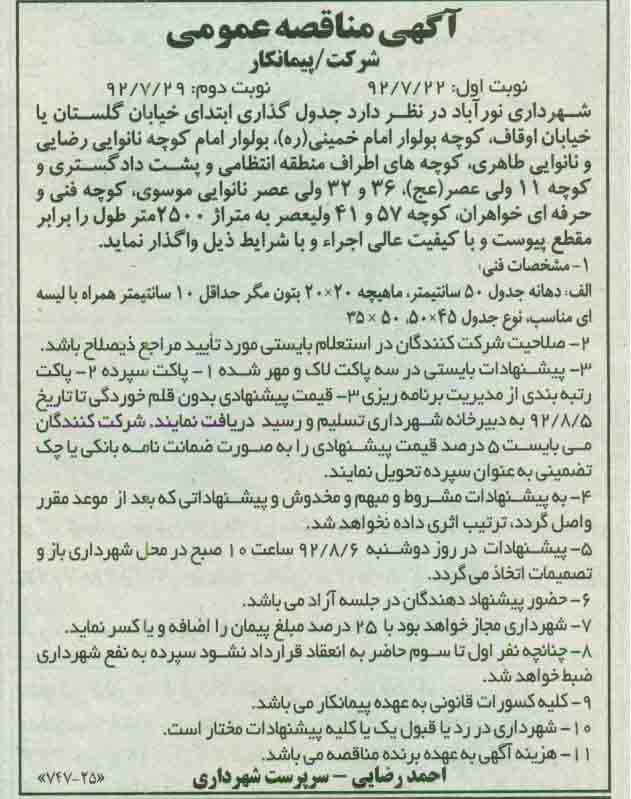 آگهی مناقصه عمومی
شرکت/پیمانکار
نوبت اول: ۹۲/۷/۲۲ نوبت دوم: ۹۲/۷/۲۹
شهرداری نورآباد در نظر دارد جدول گذاری ابتدای خیابان گلستان یا
خیابان اوقاف، کوچه بولوار امام خمینی(ره)، بولوار امام کوچه نانوایی رضایی
و نانوایی طاهری، کوچه های اطراف منطقه انتظامی و پشت دادگستری و
کوچه ۱۱ ولی عصر(عج)، ۳۶ و ۳۲ ولی عصر نانوایی موسوی، کوچه فنی و
حرفه ای خواهران، کوچه ۵۷ و ۴۱ ولیعصر به متراژ ۲۵۰۰متر طول را برابر
مقطع پیوست و با کیفیت عالی اجراء و با شرایط ذیل واگذار نماید.
۱- مشخصات فنی:
الف: دهانه جدول ۵۰ سانتیمتر، ماهیچه ۲۰×۲۰ بتون مگر حداقل ۱۰ سانتیمتر همراه با لیسه
ای مناسب، نوع جدول ۴۵×۵۰، ۵۰ × ۳۵
۲- صلاحیت شرکت کنندگان در استعلام بایستی مورد تأیید مراجع ذیصلاح باشد.
۳- پیشنهادات بایستی در سه پاکت لاک و مهر شده ۱- پاکت سپرده ۲- پاکت
رتبه بندی از مدیریت برنامه ریزی ۳- قیمت پیشنهادی بدون قلم خوردگی تا تاریخ
۹۲/۸/۵ به دبیرخانه شهرداری تسلیم و رسید دریافت نمایند. شرکت کنندگان
می بایست ۵ درصد قیمت پیشنهادی را به صورت ضمانت نامه بانکی یا چک
تضمینی به عنوان سپرده تحویل نمایند.
۴- به پیشنهادات مشروط و مبهم و مخدوش و پیشنهاداتی که بعد از موعد مقرر
واصل گردد، ترتیب اثری داده نخواهد شد.
۵- پیشنهادات در روز دوشنبه ۹۲/۸/۶ ساعت ۱۰ صبح در محل شهرداری باز و
تصمیمات اتخاذ می گردد.
۶- حضور پیشنهاد دهندگان در جلسه آزاد می باشد.
۷- شهرداری مجاز خواهد بود با ۲۵ درصد مبلغ پیمان را اضافه و یا کسر نماید.
۸- چنانچه نفر اول تا سوم حاضر به انعقاد قرارداد نشود سپرده به نفع شهرداری
ضبط خواهد شد.
۹- کلیه کسورات قانونی به عهده پیمانکار می باشد.
۱۰- شهرداری در رد یا قبول یک یا کلیه پیشنهادات مختار است.
۱۱- هزینه آگهی به عهده برنده مناقصه می باشد.
احمد رضایی – سرپرست شهرداری «۷۴۷-۲۵»